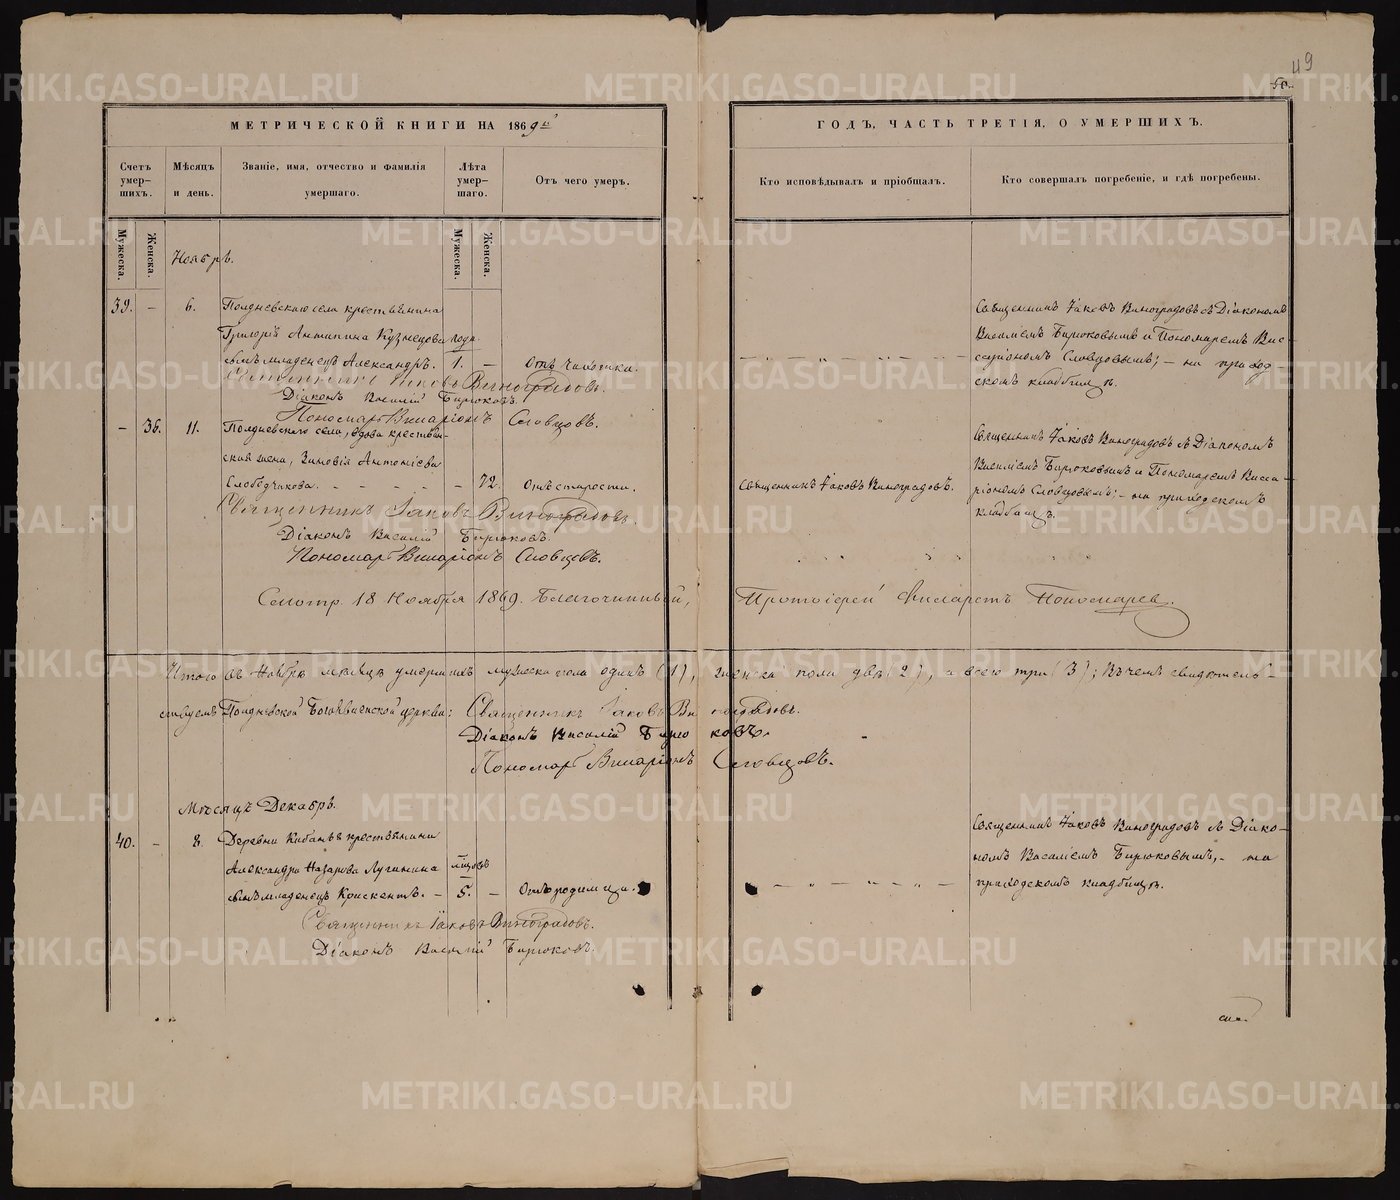 49
50.
МЕТРИЧЕСКОЙ КНИГИ НА 1869й
ГОДЪ, ЧАСТЬ ТРЕТІЯ, О УМЕРШИХЪ.
Счетъ умер-шихъ.
Мѣсяцъ и день.
Званіе, имя, отчество и фамилія умершаго.
Лѣта умер-шаго.
Отъ чего умеръ.
Кто исповѣдывалъ и пріобщалъ.
Кто совершалъ погребеніе, и гдѣ погребены.
Мужеска.
Женска.
Мужеска.
Женска.
Ноябрь.
39. – 6. Полдневскаго села крестьянина
Григорій Антипина Кузнецова года
сынъ младенецъ Александръ. 1. – Отъ чахотки.
Священникъ Іаковъ Виноградовъ.
Діаконъ Василій Бирюковъ.
Пономарь Виссаріонъ Словцовъ.
Священникъ Іаковъ Виноградовъ съ Діакономъ
Василіемъ Бирюковымъ и Пономаремъ Вис-
саріономъ Словцовымъ; – на приход-
скомъ кладбищѣ.
– 36. 11. Полдневскаго села, вдова крестьян-
ская жена, Зиновія Антоніева
Слободчикова. – 72. Отъ старости.
Священникъ Іаковъ Виноградовъ.
Священникъ Іаковъ Виноградовъ съ Діакономъ
Василіемъ Бирюковымъ и Пономаремъ Висса-
ріономъ Словцовымъ; – на приходскомъ
кладбищѣ.
Священникъ Іаковъ Виноградовъ.
Діаконъ Василій Бирюковъ.
Пономарь Виссаріонъ Словцовъ.
Смотр. 18 Ноября 1869. Благочинный, Протоіерей Филаретъ Пономарев.
Итого въ Ноябрѣ мѣсяцѣ умершихъ мужеска пола одинъ (1), женска пола двѣ (2), а всего три (3); въ чемъ свидѣтель-
ствуемъ Полдневской Богоявленской церкви: Священникъ Іаковъ Виноградовъ.
Діаконъ Василій Бирюковъ.
Пономарь Виссаріонъ Словцовъ.
Мѣсяцъ Декабрь.
40. – 8. Деревни Кибанъя крестьянина
Александра Назарова Лугинина мѣсяцовъ
сынъ младенецъ Крискентъ. – 5. – Отъ родимца.
Священникъ Іаковъ Виноградовъ.
Діаконъ Василій Бирюковъ.
Священникъ Іаковъ Виноградовъ съ Діако-
номъ Василіемъ Бирюковымъ, – на
приходскомъ кладбищѣ.
METRIKI.GASO-URAL.RU